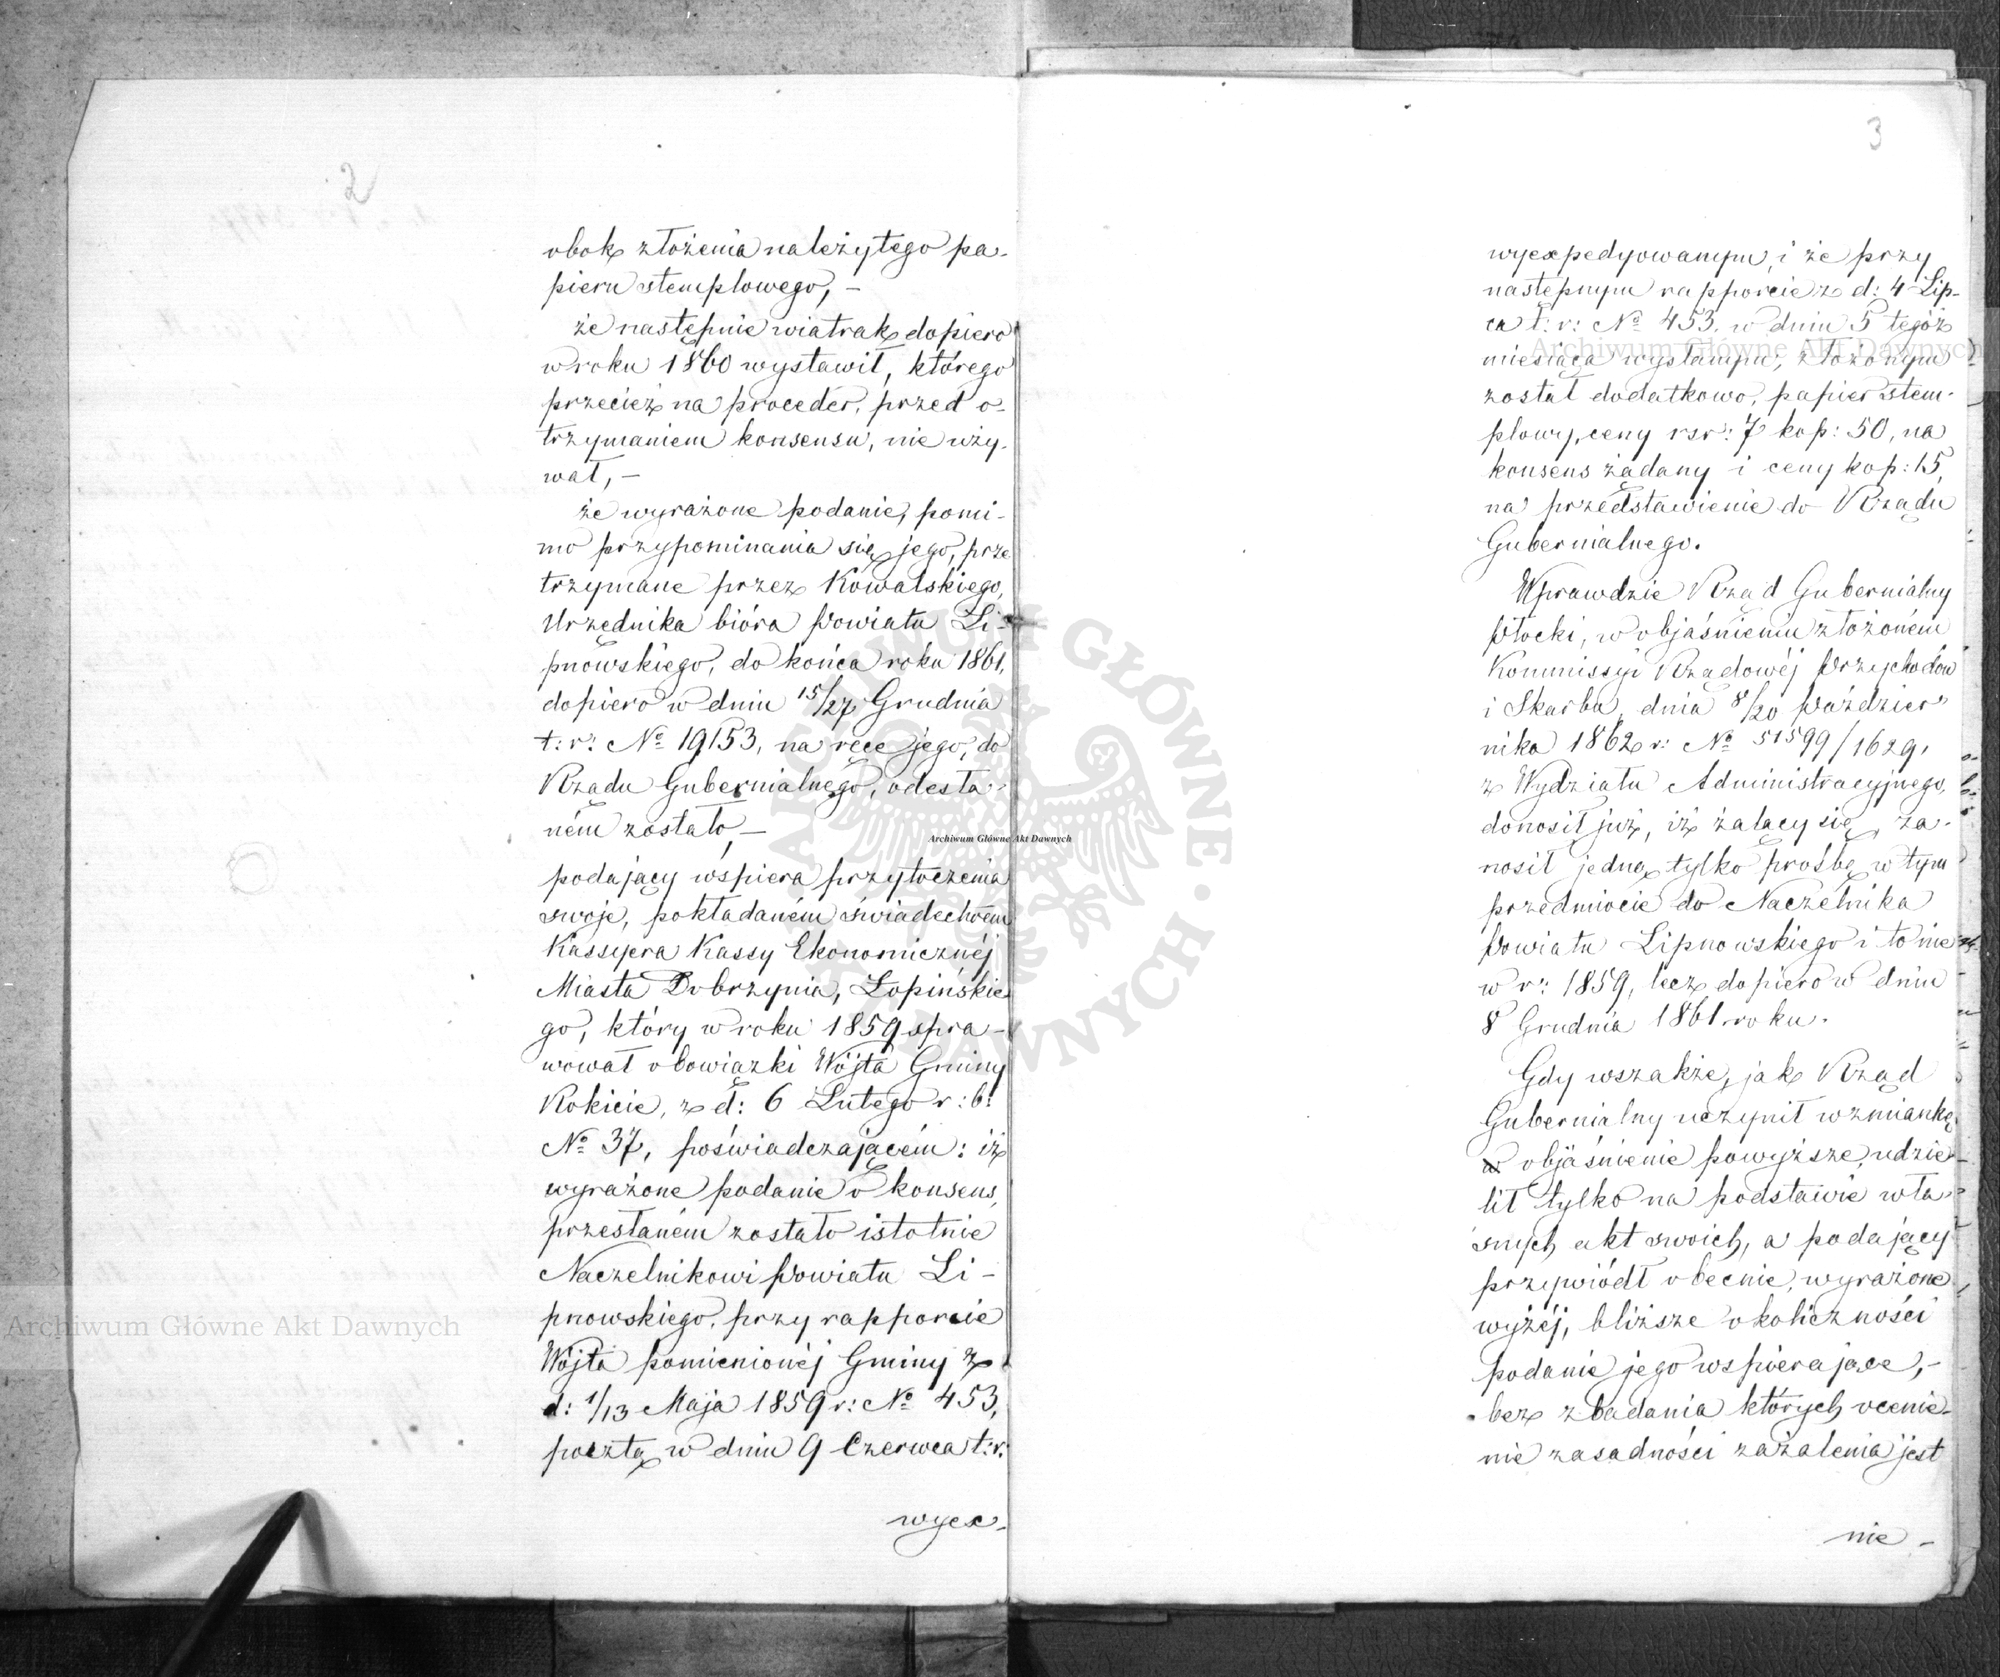 2
obok złożenia należytego pa-
pieru stemplowego, —
że następnie wiatrak dopiero
w roku 1860 wystawił, którego
przecież na proceder, przed o-
trzymaniem konsensu, nie uży-
wał, —
że wyrażone podanie, pomi-
mo przypominania się jego, prze
trzymane przez Kowalskiego,
Urzędnika bióra Powiatu Li-
pnowskiego, do końca roku 1861,
dopiero w dniu 15/27 Grudnia
t: r: № 19153, na ręce jego, do
Rządu Gubernialnego, odesła-
ném zostało, —
podający wspiera przytoczenia
swoje, pokładaném świadectwem
Kassyera Kassy Ekonomicznéj
Miasta Dobrzynia, Łopińskie
go, który w roku 1859 spra-
wował obowiązki Wójta Gminy
Rokicie, z d: 6 Lutego r: b:
№ 37, poświadczającém: iż
wyrażone podanie o konsens,
przesłaném zostało istotnie
Naczelnikowi Powiatu Li-
pnowskiego, przy rapporcie
Wójta pomienionéj Gminy z
d: 1/13 Maja 1859 r: № 453,
pocztą w dniu 9 Czerwca t: r:
wyex-
3
wyexpedyowanym, i że przy
następnym rapporcie z d: 4 Lip-
ca t: r: № 453. w dniu 5 tegoż
miesiąca wysłanym, złożonym
został dodatkowo, papier stem-
plowy, ceny rsr: 7 kop: 50, na
konsens żądany i ceny kop: 15,
na przedstawienie do Rządu
Gubernialnego.
Wprawdzie Rząd Gubernialny
Płocki, w objaśnieniu złożoném
Kommissyi Rządowéj Przychodów
i Skarbu, dnia 8/20 Paździer-
nika 1862 r: № 51599/1629,
z Wydziału Administracyjnego,
donosił już, iż żalący się, za-
nosił jedną tylko prośbę w tym
przedmiocie do Naczelnika
Powiatu Lipnowskiego i to nie
w r: 1859, lecz dopiero w dniu
8 Grudnia 1861. roku.
Gdy wszakże, jak Rząd
Gubernialny uczynił wzmiankę
w objaśnienie powyższe, udzie-
lił tylko na podstawie wła-
snych akt swoich, a podający
przywiódł obecnie, wyrażone
wyżéj, bliższe okoliczności
podanie jego wspierające, —
bez zbadania których ocenie-
nie zasadności zażalenia jest
nie -
Archiwum Główne Akt Dawnych
Archiwum Główne Akt Dawnych
Archiwum Główne Akt Dawnych
ARCHIWUM GŁÓWNE AKT DAWNYCH